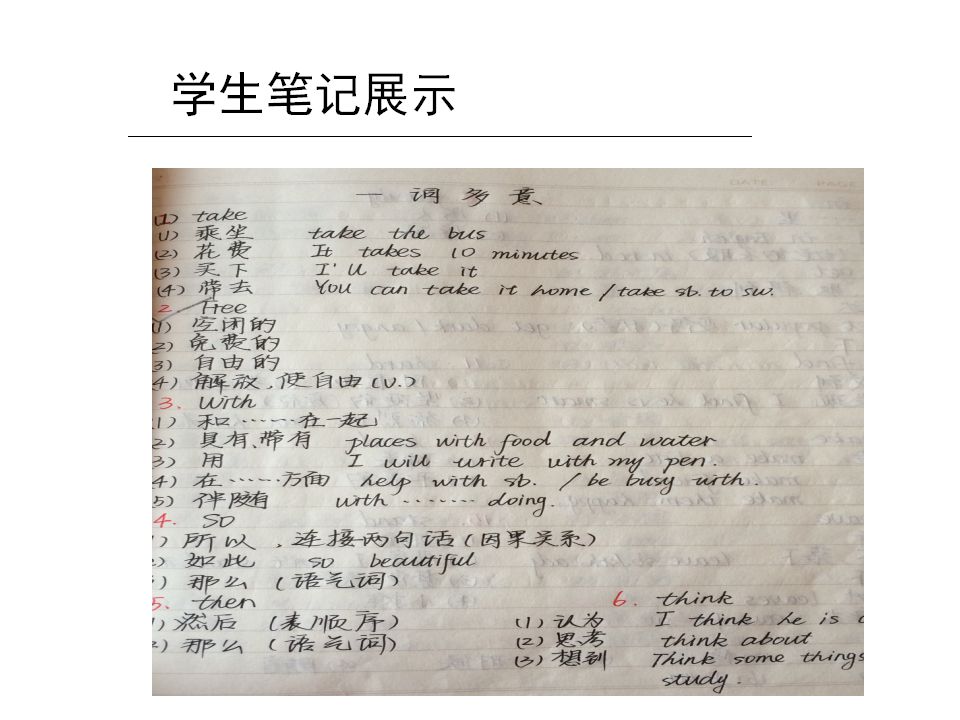 学生笔记展示
一词多意
(1) take
(1) 乘坐 take the bus
(2) 花费 It takes 10 minutes
(3) 买下 I'll take it
(4) 带去 You can take it home / take sb. to sw.
2. Free
(1) 空闲的
(2) 免费的
(3) 自由的
(4) 解放，使自由 (v.)
3. With
(1) 和……在一起
(2) 具有、带有 places with food and water
(3) 用 I will write with my pen.
(4) 在……方面 help with sb. / be busy with.
(5) 伴随着 with ........ doing.
4. so
1) 所以，连接两句话（因果关系）
2) 如此 so beautiful
) 那么（语气词）
5. then
1) 然后（表顺序）
2) 那么（语气词）
6. think
(1) 认为 I think he is
(2) 思考 think about
(3) 想到 Think some things
study.